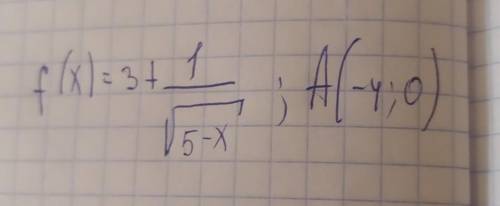 f(x) = 3 + 1/√(5-x) ; A(-4; 0)